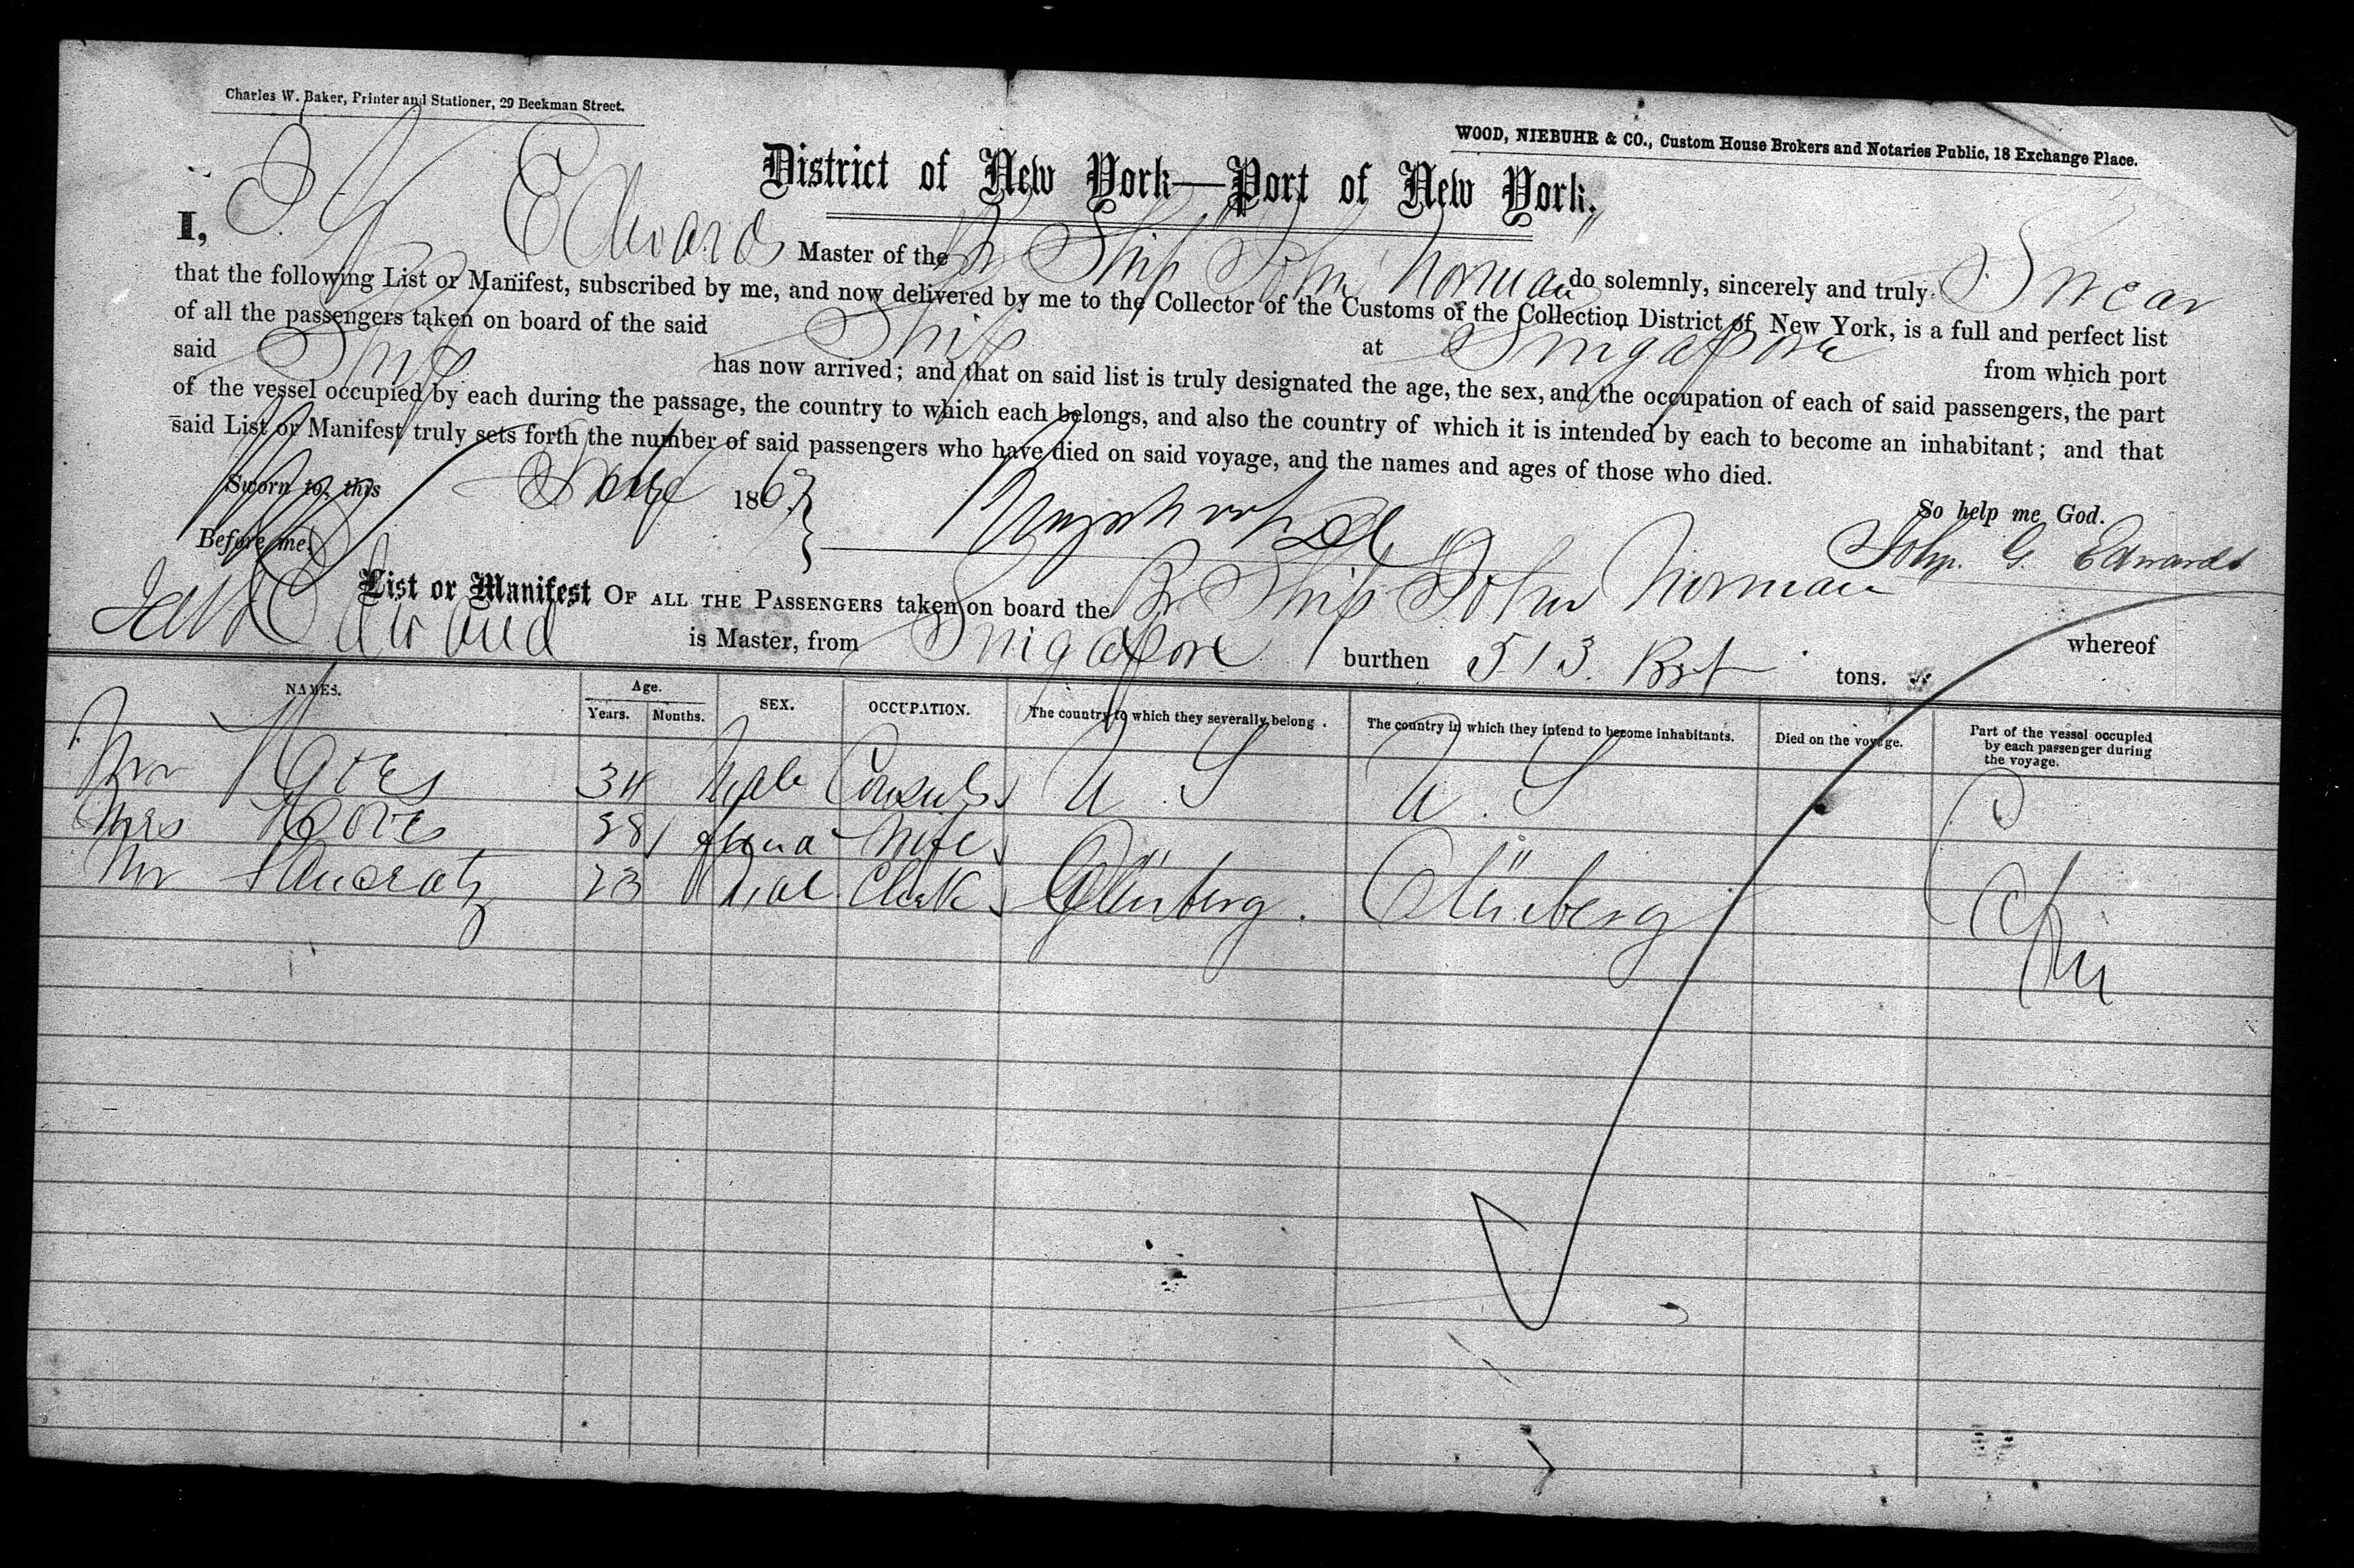 Charles W. Baker, Printer and Stationer, 29 Beekman Street.
WOOD, NIEBUHR & CO., Custom House Brokers and Notaries Public, 18 Exchange Place.
District of New York—Port of New York.
I, J G Edwards Master of the Br Ship "John Norman" do solemnly, sincerely and truly Swear
that the following List or Manifest, subscribed by me, and now delivered by me to the Collector of the Customs of the Collection District of New York, is a full and perfect list
of all the passengers taken on board of the said Ship at Singapore from which port
said Ship has now arrived; and that on said list is truly designated the age, the sex, and the occupation of each of said passengers, the part
of the vessel occupied by each during the passage, the country to which each belongs, and also the country of which it is intended by each to become an inhabitant; and that
said List or Manifest truly sets forth the number of said passengers who have died on said voyage, and the names and ages of those who died.
Sworn to, this 1867
So help me God.
Before me,
John. G. Edwards
List or Manifest OF ALL THE PASSENGERS taken on board the Br Ship "John Norman whereof
Edward is Master, from Singapore burthen 513 tons.
NAMES. Age. Years. Months. SEX. OCCUPATION. The country to which they severally belong. The country in which they intend to become inhabitants. Died on the voyage. Part of the vessel occupied by each passenger during the voyage.
Mr 34 Male Consul U.S U.S
Mrs 28 Wife
Mr 23 Clerk